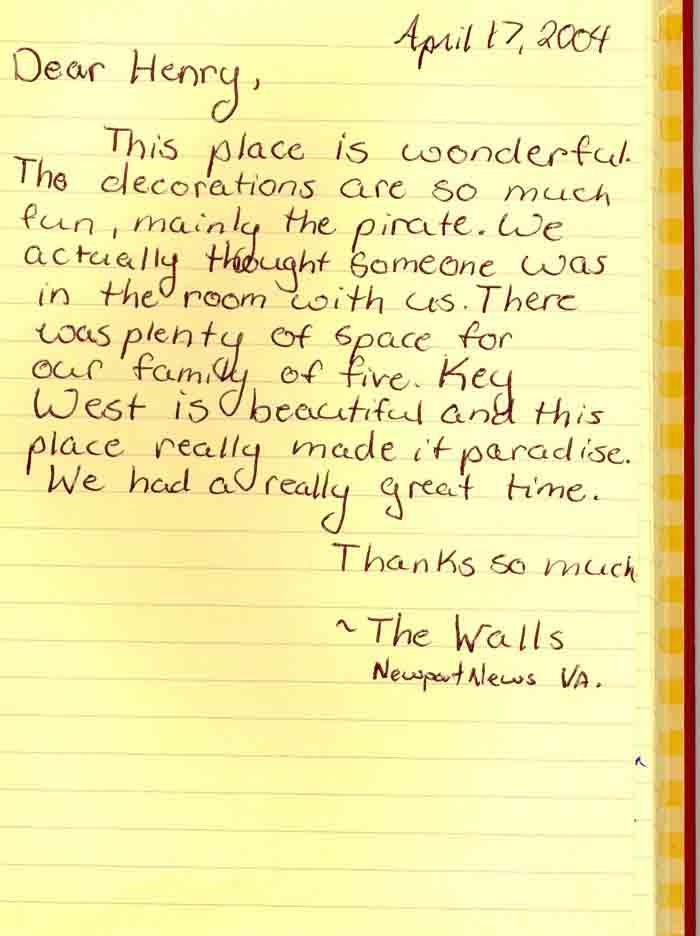 April 17, 2004
Dear Henry,
This place is wonderful.
The decorations are so much
fun, mainly the pirate. We
actually thought someone was
in the room with us. There
was plenty of space for
our family of five. Key
West is beautiful and this
place really made it paradise.
We had a really great time.
Thanks so much
~ The Walls
Newport News VA.